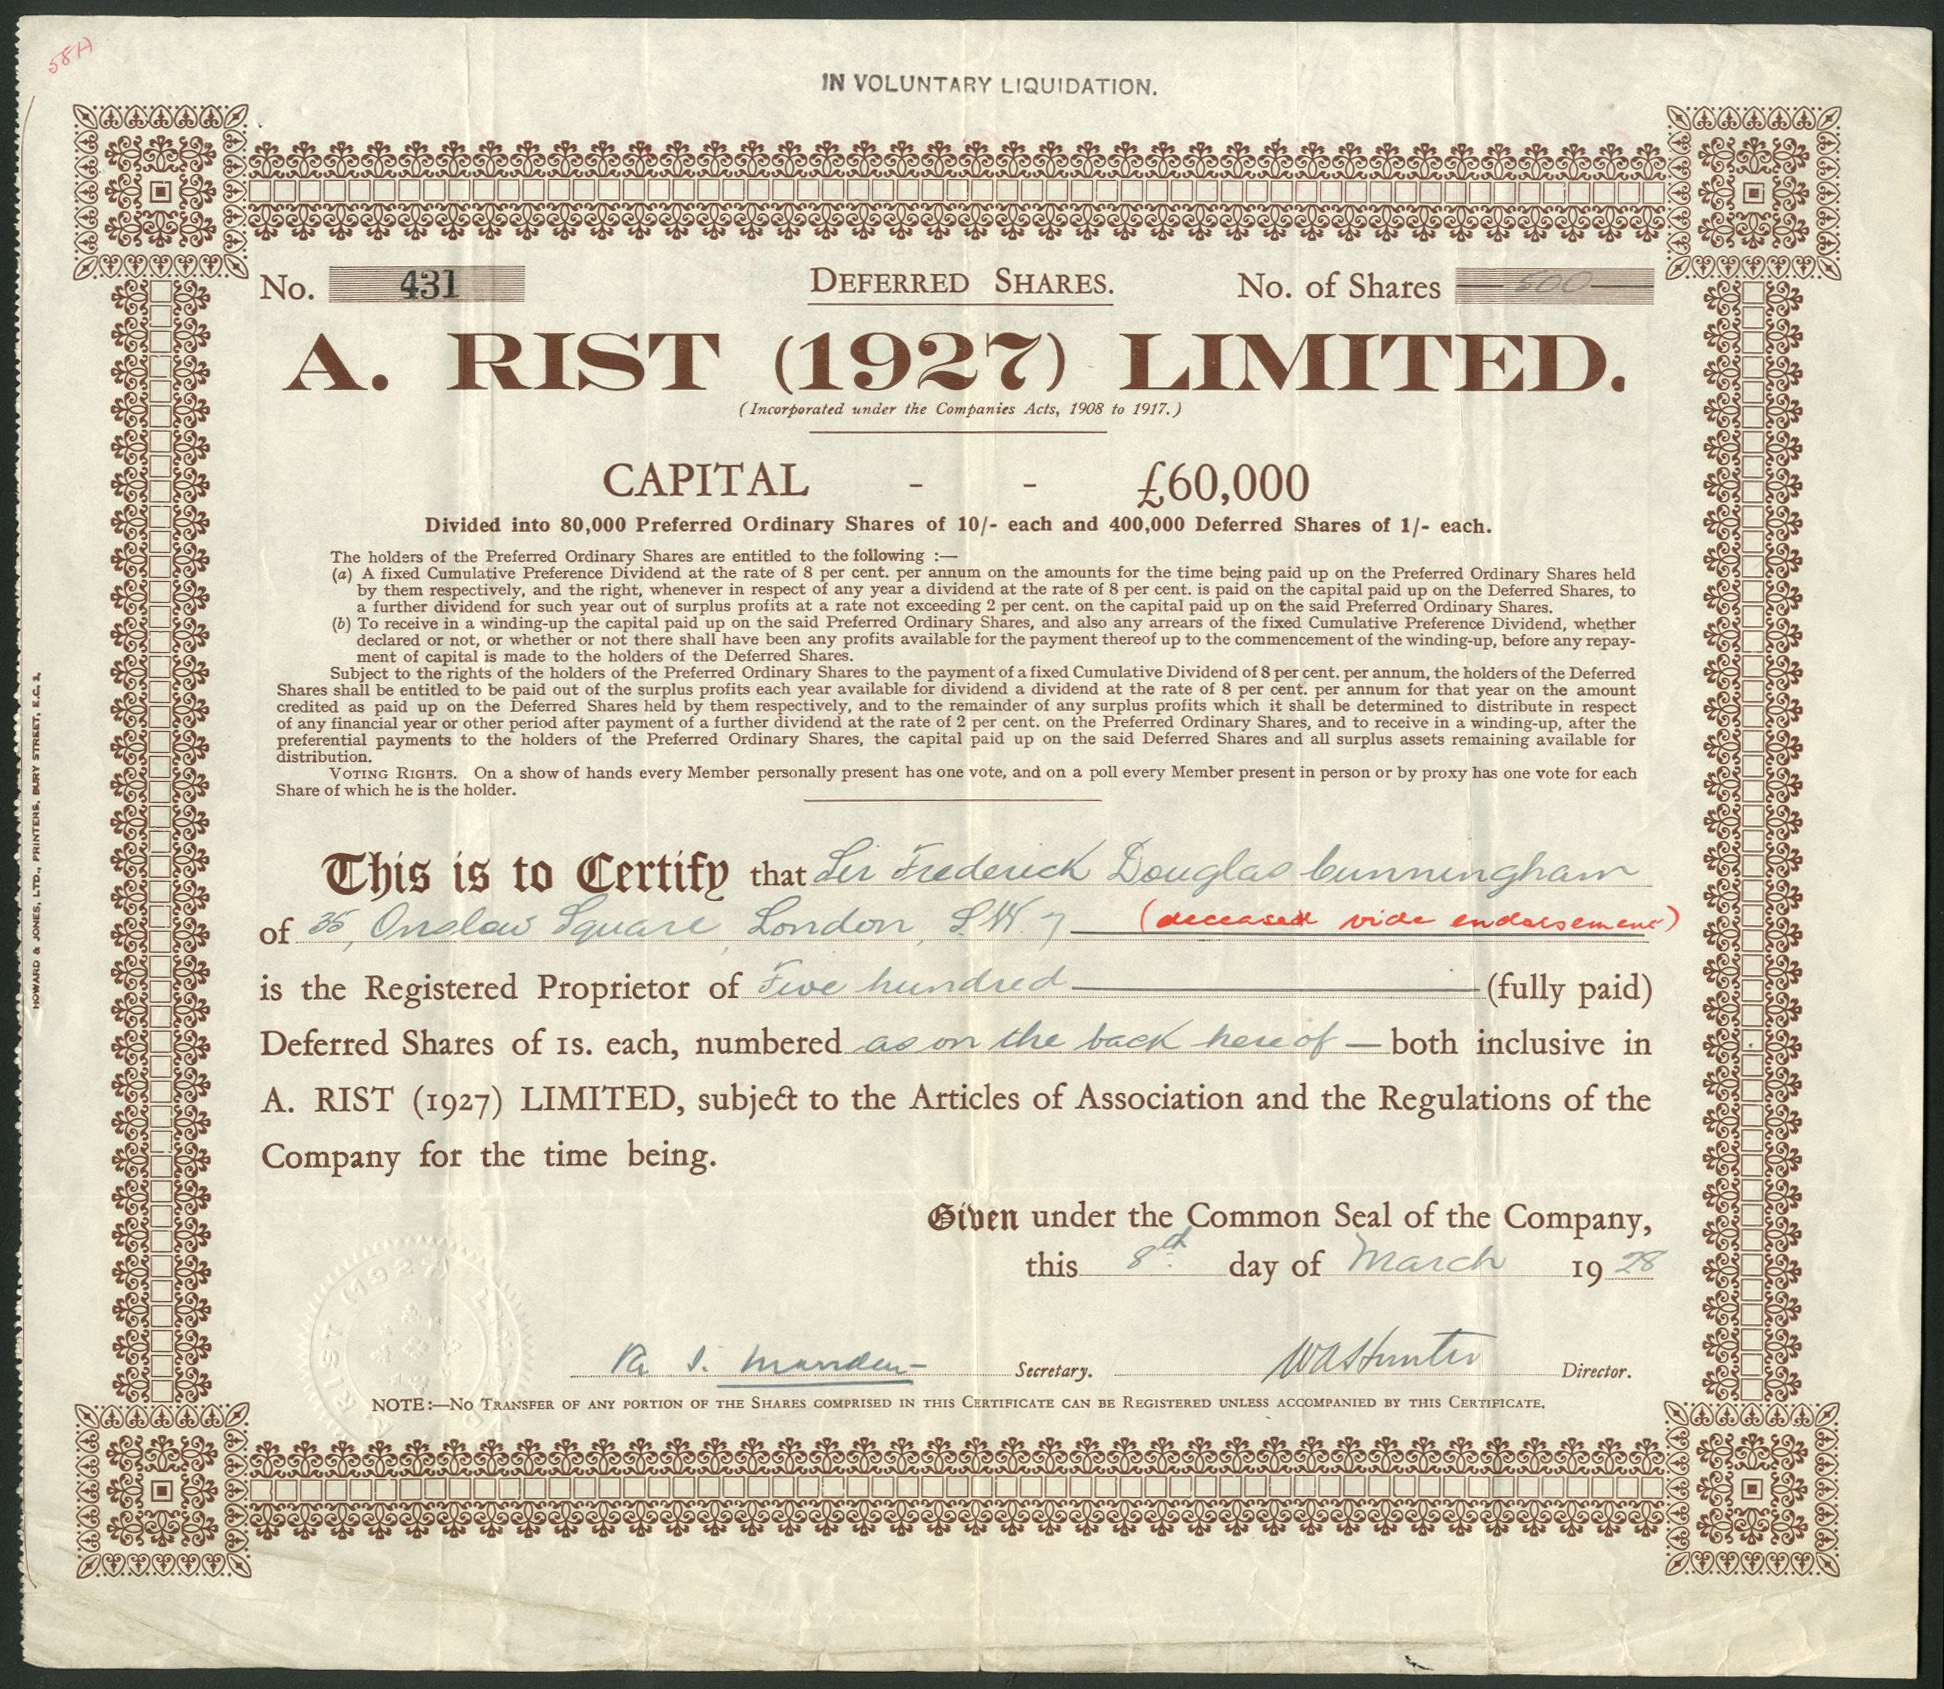 58A
IN VOLUNTARY LIQUIDATION.
No. 431 DEFERRED SHARES. No. of Shares 500
A. RIST (1927) LIMITED.
(Incorporated under the Companies Acts, 1908 to 1917.)
CAPITAL - - £60,000
Divided into 80,000 Preferred Ordinary Shares of 10/- each and 400,000 Deferred Shares of 1/- each.
The holders of the Preferred Ordinary Shares are entitled to the following :—
(a) A fixed Cumulative Preference Dividend at the rate of 8 per cent. per annum on the amounts for the time being paid up on the Preferred Ordinary Shares held
by them respectively, and the right, whenever in respect of any year a dividend at the rate of 8 per cent. is paid on the capital paid up on the Deferred Shares, to
a further dividend for such year out of surplus profits at a rate not exceeding 2 per cent. on the capital paid up on the said Preferred Ordinary Shares.
(b) To receive in a winding-up the capital paid up on the said Preferred Ordinary Shares, and also any arrears of the fixed Cumulative Preference Dividend, whether
declared or not, or whether or not there shall have been any profits available for the payment thereof up to the commencement of the winding-up, before any repay-
ment of capital is made to the holders of the Deferred Shares.
Subject to the rights of the holders of the Preferred Ordinary Shares to the payment of a fixed Cumulative Dividend of 8 per cent. per annum, the holders of the Deferred
Shares shall be entitled to be paid out of the surplus profits each year available for dividend a dividend at the rate of 8 per cent. per annum for that year on the amount
credited as paid up on the Deferred Shares held by them respectively, and to the remainder of any surplus profits which it shall be determined to distribute in respect
of any financial year or other period after payment of a further dividend at the rate of 2 per cent. on the Preferred Ordinary Shares, and to receive in a winding-up, after the
preferential payments to the holders of the Preferred Ordinary Shares, the capital paid up on the said Deferred Shares and all surplus assets remaining available for
distribution.
VOTING RIGHTS. On a show of hands every Member personally present has one vote, and on a poll every Member present in person or by proxy has one vote for each
Share of which he is the holder.
This is to Certify that Sir Frederick Douglas Cunningham
of 35, Onslow Square, London, S.W. 7 (deceased vide endorsement)
is the Registered Proprietor of Five hundred (fully paid)
Deferred Shares of 1s. each, numbered as on the back hereof — both inclusive in
A. RIST (1927) LIMITED, subject to the Articles of Association and the Regulations of the
Company for the time being.
Given under the Common Seal of the Company,
this 8th day of March 1928
Secretary. WAHunter Director.
NOTE:—No TRANSFER OF ANY PORTION OF THE SHARES COMPRISED IN THIS CERTIFICATE CAN BE REGISTERED UNLESS ACCOMPANIED BY THIS CERTIFICATE.
A. RIST (1927) LIMITED
HOWARD & JONES, LTD., PRINTERS, BURY STREET, E.C. 3.